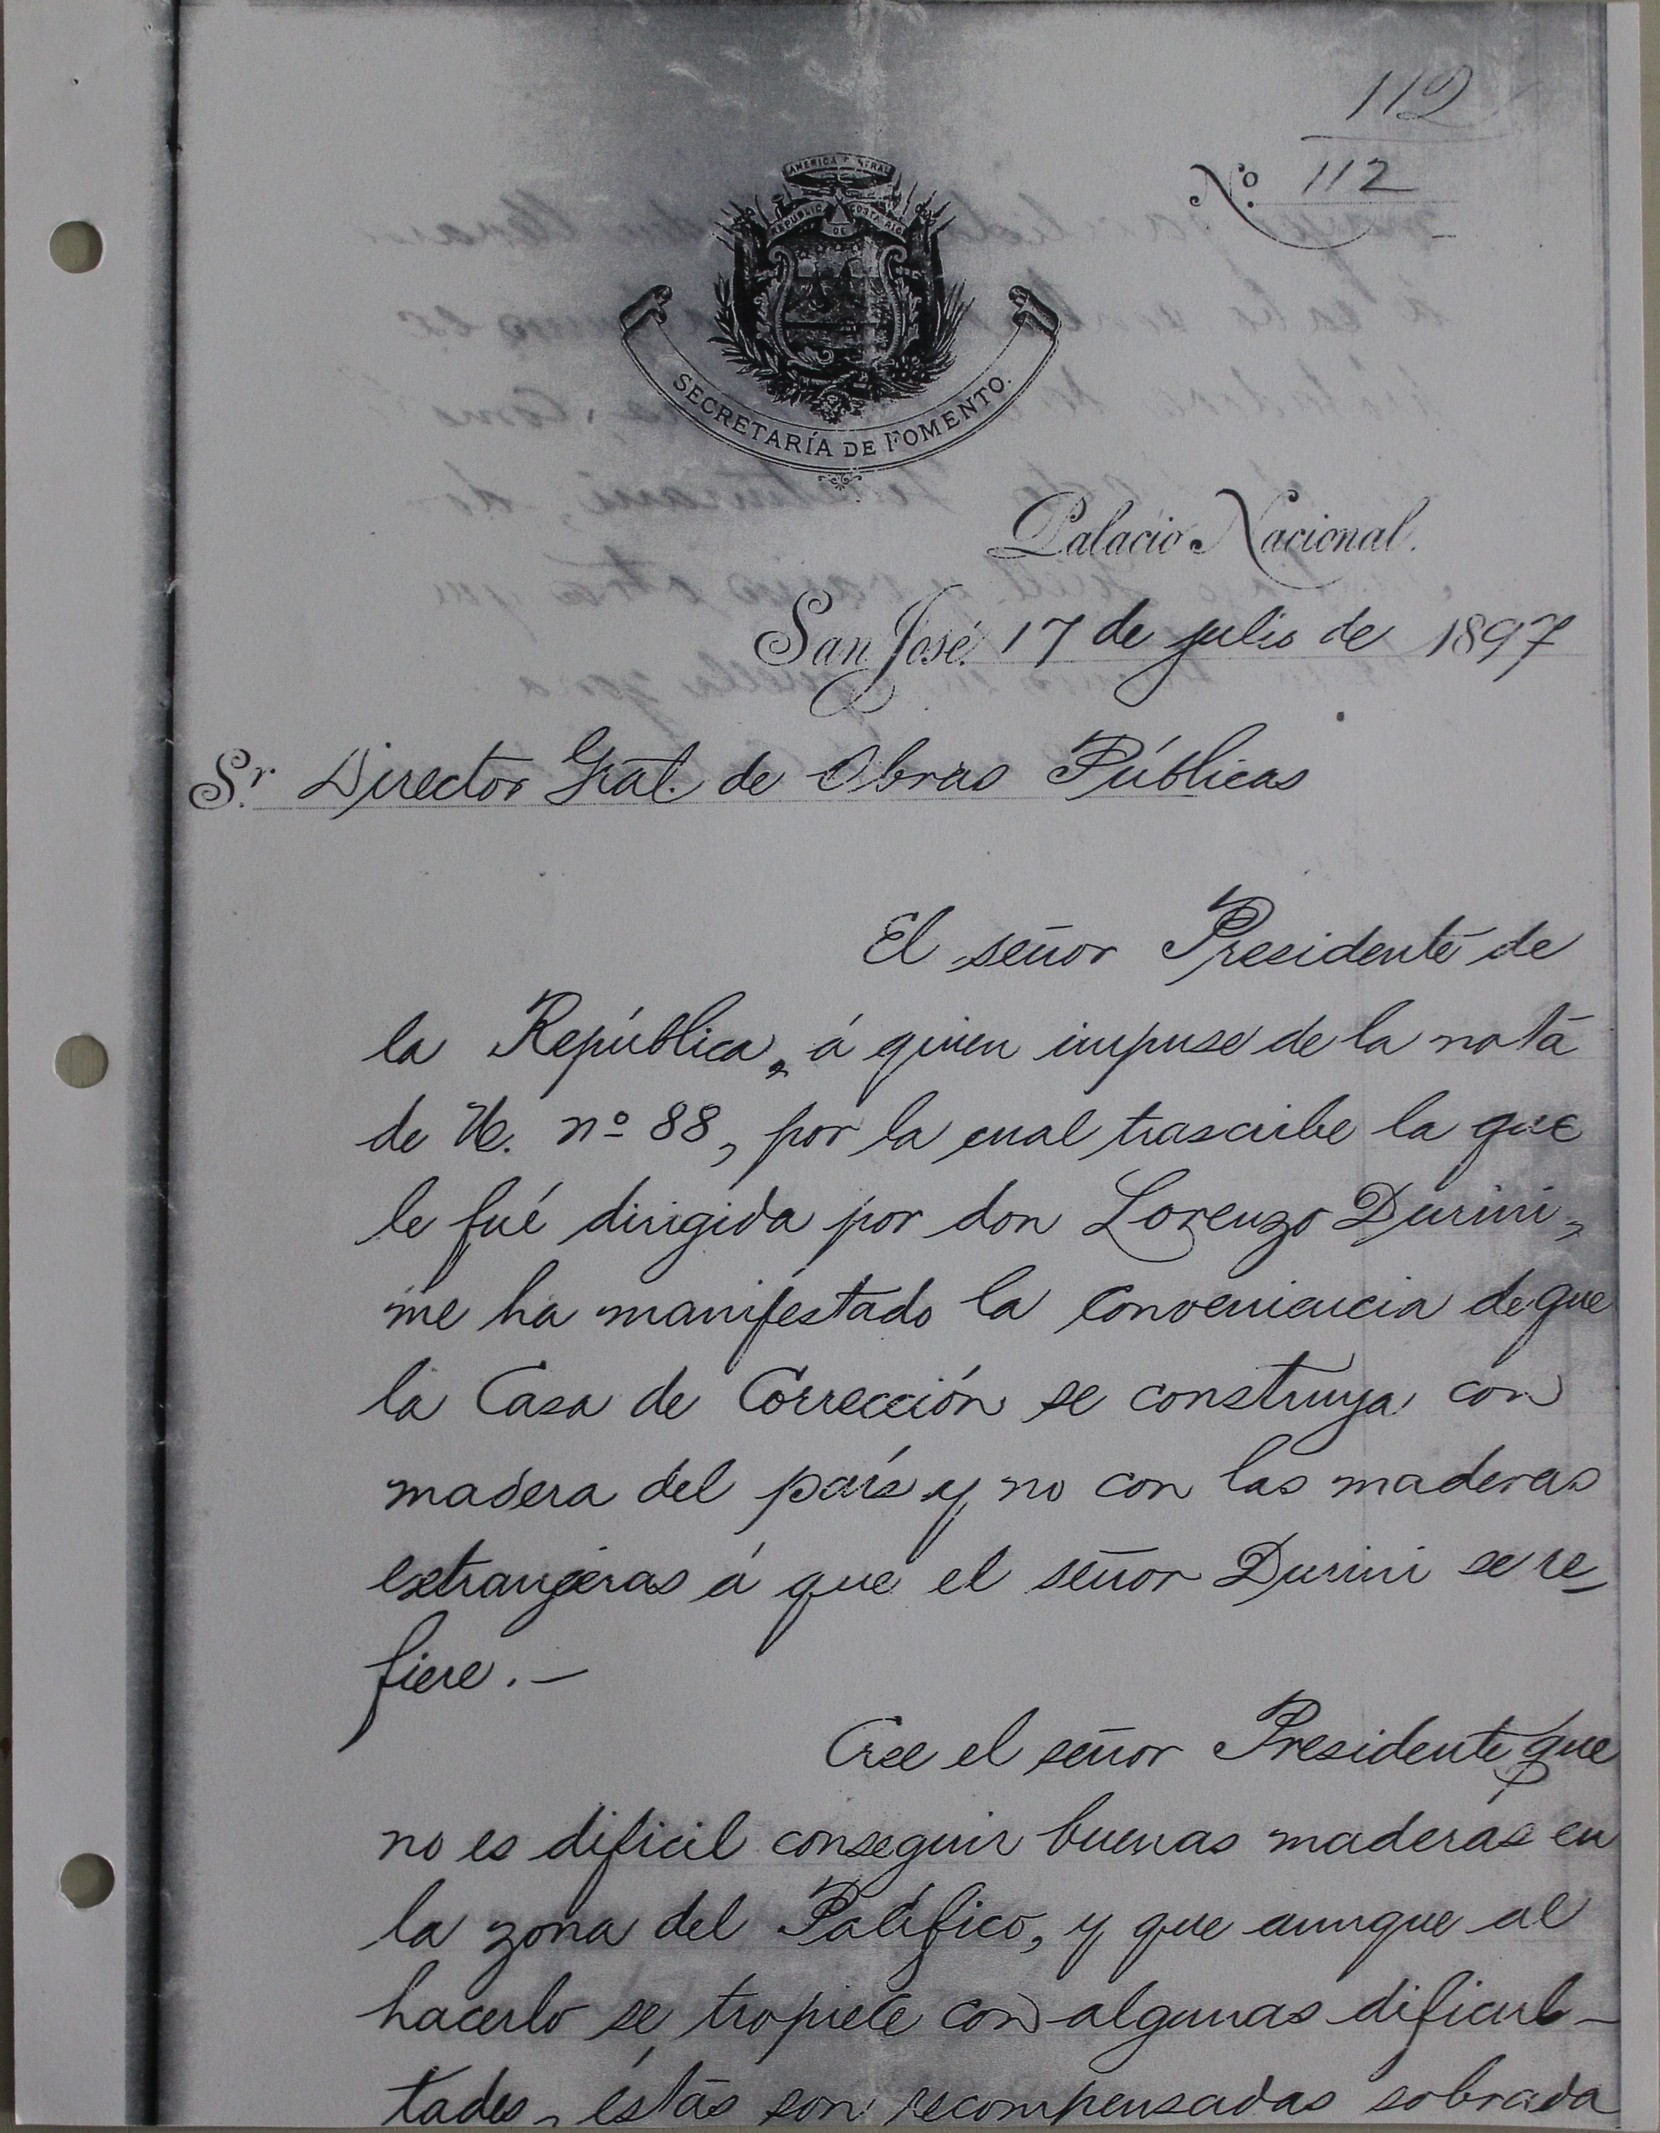 112
Nº 112
AMERICA CENTRAL
REPUBLICA DE COSTA RICA
SECRETARÍA DE FOMENTO.
Palacio Nacional.
San José, 17 de julio de 1897
Sr. Director Gral. de Obras Públicas
El señor Presidente de
la República, á quien impuse de la nota
de U. nº 88, por la cual trascribe la que
le fué dirigida por don Lorenzo Durini,
me ha manifestado la conveniencia de que
la Casa de Corrección se construya con
madera del país y no con las maderas
extranjeras á que el señor Durini se re-
fiere.—
Cree el señor Presidente que
no es dificil conseguir buenas maderas en
la zona del Pacífico, y que aunque al
hacerlo se tropiece con algunas dificul-
tades, éstas son recompensadas sobrada